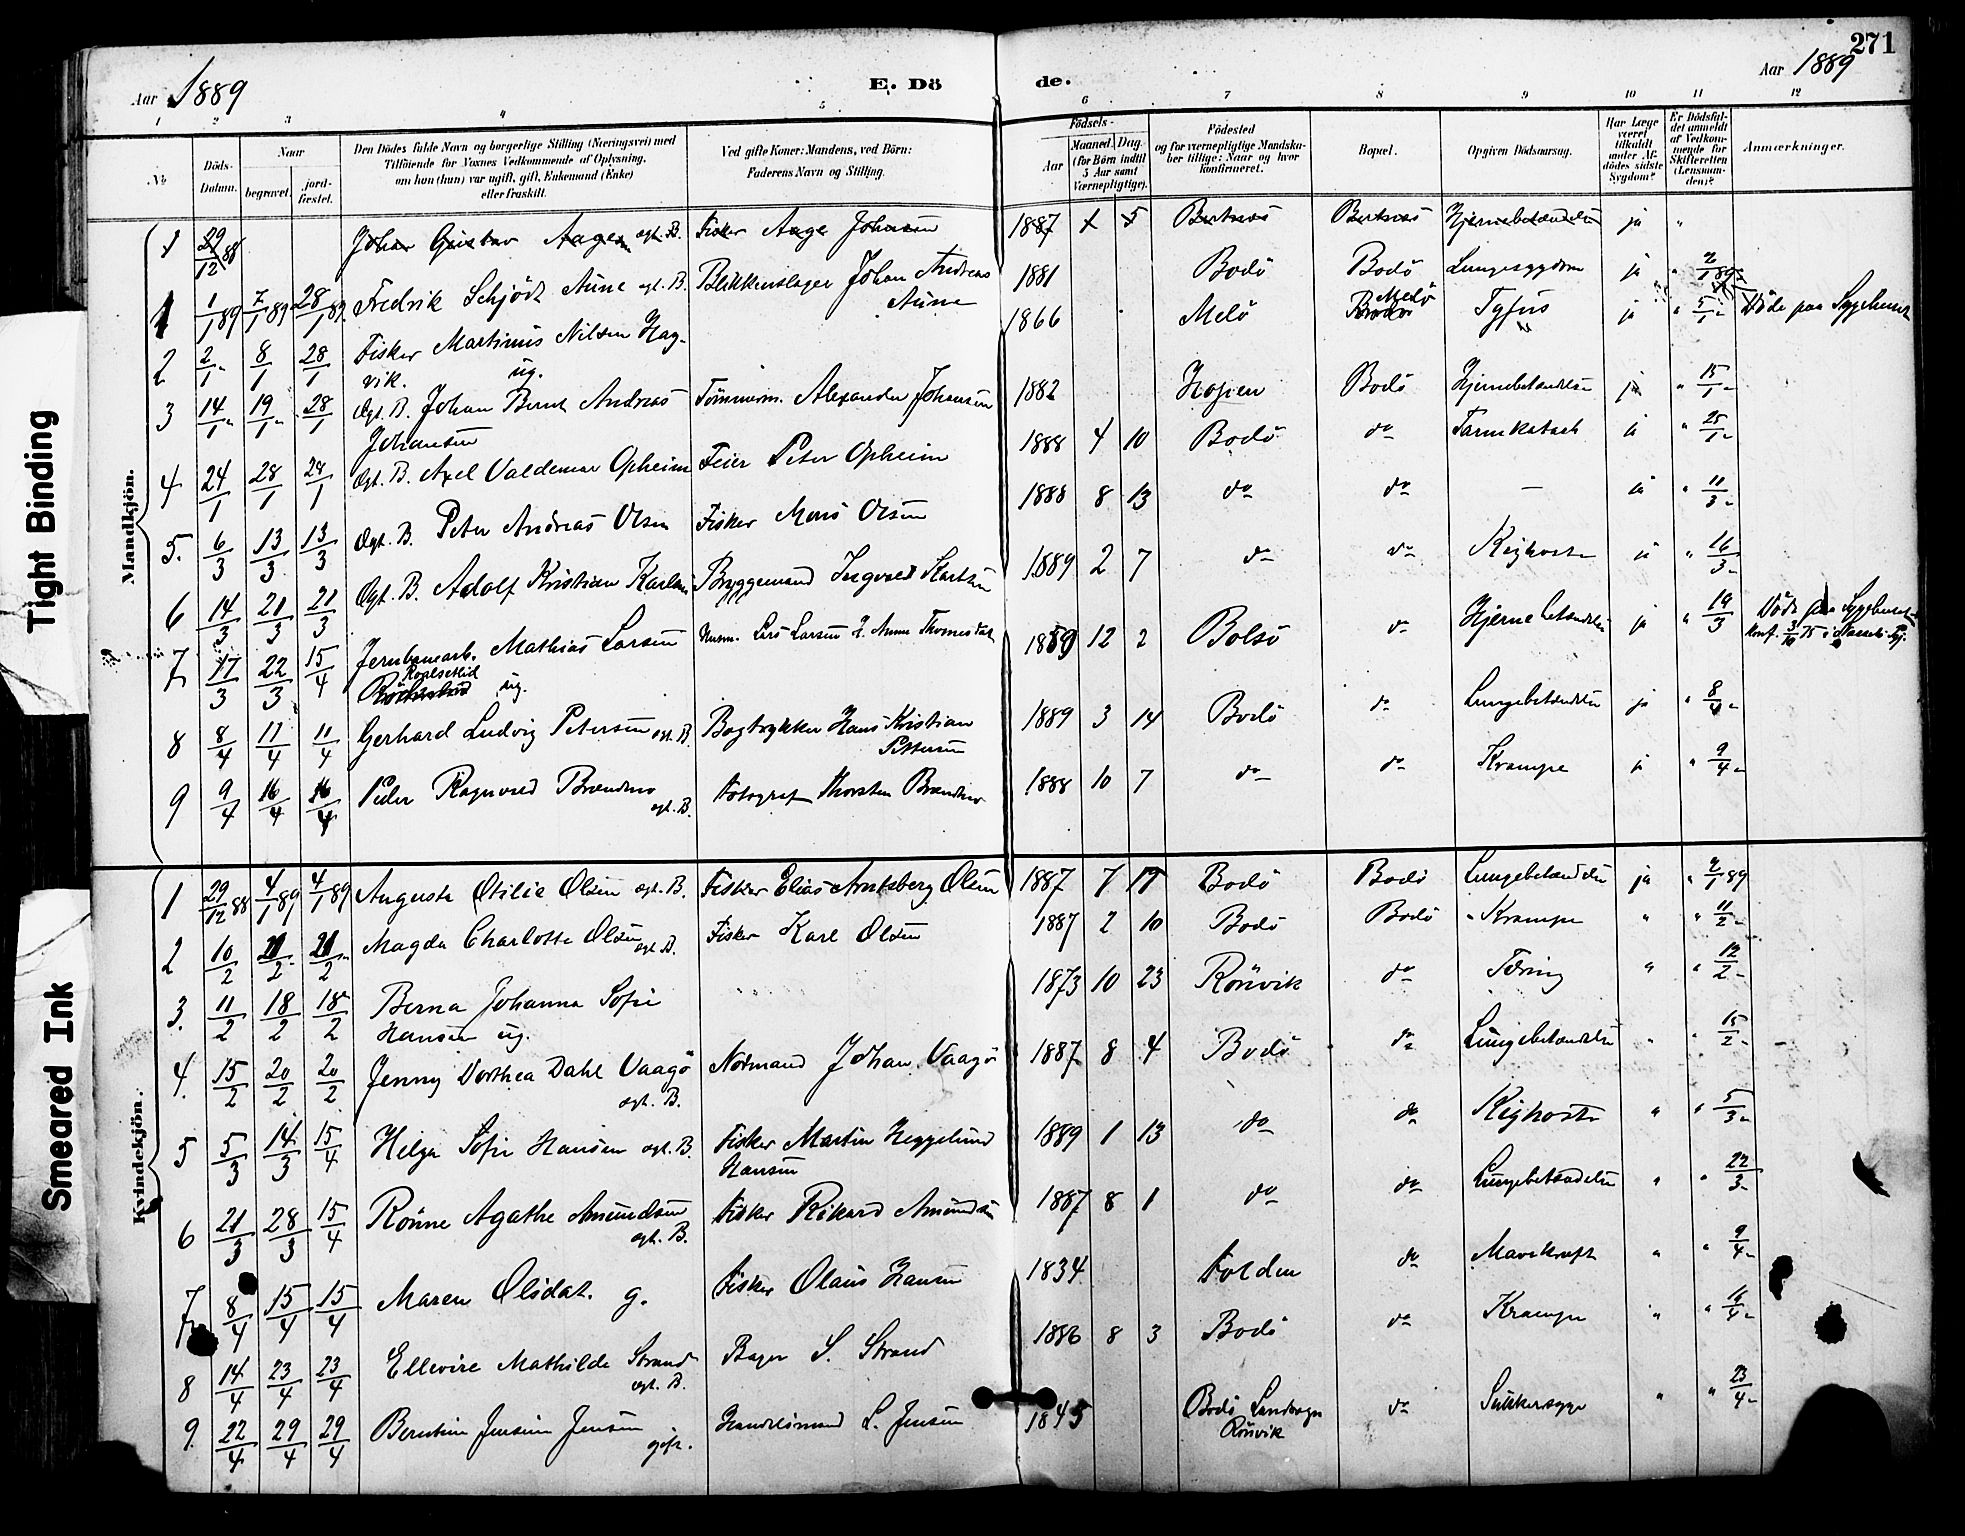 271
Aar 1889 E. Dö de. Aar 1889
1 2 3 4 5 6 7 8 9 10 11 12
No.
Döds-Datum.
Naar
begravet.
jordfæstet.
Den Dödes fulde Navn og borgerlige Stilling (Næringsvei) med
Tilföiende for Voxnes Vedkommende af Oplysning,
om han (hun) var ugift, gift, Enkemand (Enke)
eller fraskilt.
Ved gifte Koner: Mandens, ved Börn:
Faderens Navn og Stilling.
Födsels-
Aar
Maaned. Dag.
(for Börn indtil
5 Aar samt
Værnepligtige).
Födested
og for værnepligtige Mandskaber tillige: Naar og hvor
konfirmeret.
Bopæl.
Opgiven Dödsaarsag.
Har Læge
været
tilkaldt
under Afdödes sidste
Sygdom?
Er Dödsfaldet anmeldt
af Vedkommende for
Skifteretten
(Lensmanden)?
Anmærkninger.
Tight Binding
Smeared Ink
Mandkjön.
1 29/12 88 Johan Gustav Aagesen egt. B. Fisker Aage Johansen 1887 5 Bertnes Bertnes Hjernebetændelse ja "
1 1/1 89 7/1 89 28/1 89 Fredrik Schjödt Aune egt. B. Blikkenslager Johan Andreas Aune 1881 Bodö Bodö Lungesygdom ja " 2/1 89
2 2/1 8/1 28/1 Fisker Martinus Nilsen Hagvik. ug. 1866 Melö Melö Tyfus ja " 5/1 Döde paa Sygehuset
3 14/1 19/1 28/1 Egt. B. Johan Bernt Andreas Johansen Tömmerm. Alexander Johansen 1882 Bodö Hjernebetændelse ja " 15/1
4 24/1 28/1 28/1 Egt. B. Axel Valdemar Opheim Feier Peter Opheim 1888 4 10 Bodö do Tarmkatarh ja " 25/1
5. 6/3 13/3 13/3 Egt. B. Peter Andreas Olsen Fisker Mons Olsen 1888 8 13 do do — ja " 11/3
6 14/3 21/3 21/3 Egt. B. Adolf Kristian Karlsen Bryggemand Ingvald Karlsen 1889 2 7 do do Kighoste ja " 16/3
7 17/3 22/3 15/4 Jernbanearb. Mathias Larsen ug. Husm. Lars Larsen 1859 12 2 Bolsö do Hjernebetændelse ja " 19/3 Döde paa Sygehuset
8 8/4 11/4 11/4 Gerhard Ludvig Petersen egt. B. Bogtrykker Hans Kristian Pettersen 1889 3 14 Bodö do Lungebetændelse ja " 8/4
9 9/4 16/4 16/4 Peder Ragnvald Brændmo egt. B. Fotograf Thorsten Brændmo 1888 10 7 do do Krampe ja " 9/4
Kvindekjön.
1 29/12 88 4/1 89 4/1 89 Augusta Otilie Olsen egt. B. Fisker Elias Arntsberg Olsen 1887 7 Bodö Bodö Lungebetændelse ja " 2/1 89
2 10/2 21/2 21/2 Magda Charlotte Olsen egt. B. Fisker Karl Olsen 1887 2 10 Bodö Bodö Krampe " " 11/2
3. 11/2 18/2 18/2 Berna Johanna Sofie Hansen ug. 1873 10 23 Rönvik do Tæring " " 12/2
4. 15/2 20/2 20/2 Jenny Dorthea Dahl Vaagö egt. B. Notmand Johan Vaagö 1887 8 4 Bodö do Lungebetændelse " " 15/2
5 5/3 14/3 15/4 Helga Sofie Hansen egt. B. Fisker Martin Heggelund Hansen 1889 1 13 do do Kighoste " " 5/3
6 21/3 28/3 15/4 Rönne Agathe Amundsen egt. B. Fisker Rikard Amundsen 1887 8 1 do do Lungebetændelse " " 22/3
7 8/4 15/4 15/4 Maren Olsdat. g. Fisker Olaus Hansen 1834 Folden do Mavekræft " " 9/4
8 14/4 23/4 23/4 Ellevine Mathilde Strand egt. B. Bager S. Strand 1886 8 3 Bodö do Krampe " "
9. 22/4 29/4 29/4 Berntine Jensine Jensen gift. Handelsmand L. Jensen 1845 Bodö Landsogn Rönvik do Sukkersyge " " 23/4